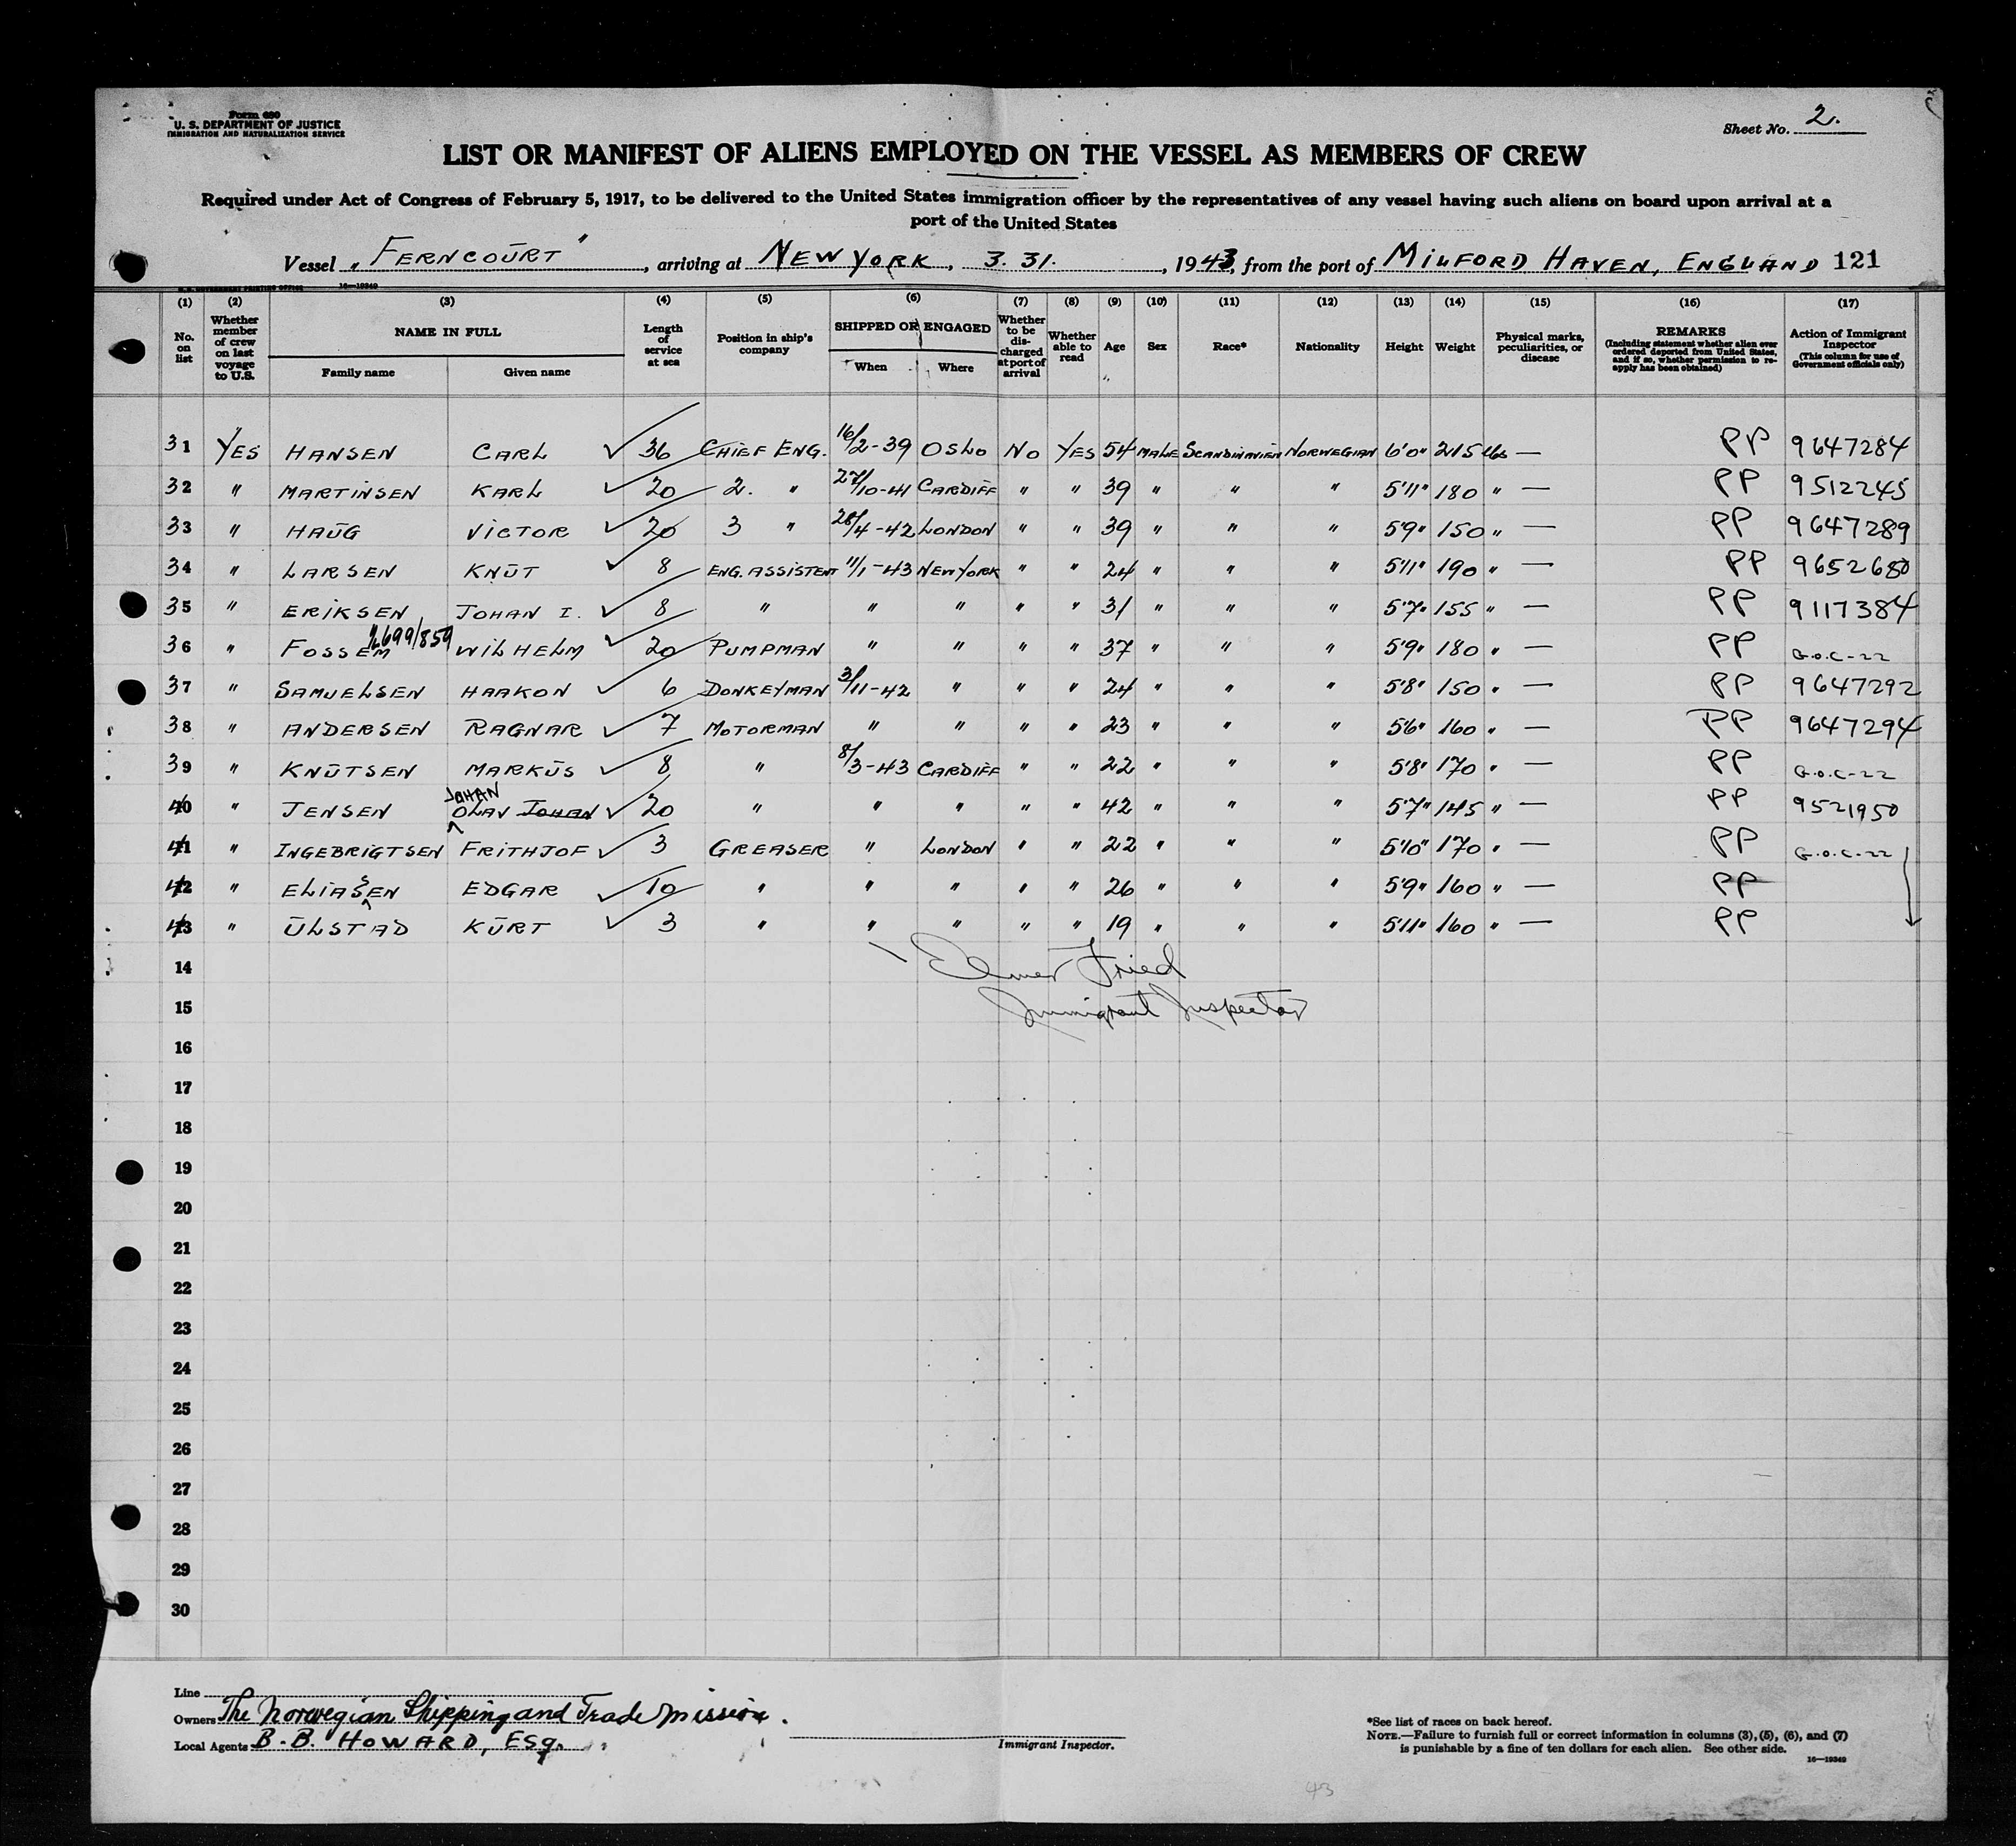 Form 680
U. S. DEPARTMENT OF JUSTICE
IMMIGRATION AND NATURALIZATION SERVICE
Sheet No. 2.
LIST OR MANIFEST OF ALIENS EMPLOYED ON THE VESSEL AS MEMBERS OF CREW
Required under Act of Congress of February 5, 1917, to be delivered to the United States immigration officer by the representatives of any vessel having such aliens on board upon arrival at a
port of the United States
Vessel „FERNCOŪRT", arriving at NEW YORK, 3. 31., 1943, from the port of MILFORD HAVEN, ENGLAND 121
U. S. GOVERNMENT PRINTING OFFICE 16—19349
(1) (2) (3) (4) (5) (6) (7) (8) (9) (10) (11) (12) (13) (14) (15) (16) (17)
No. on list
Whether member of crew on last voyage to U.S.
NAME IN FULL
Family name Given name
Length of service at sea
Position in ship's company
SHIPPED OR ENGAGED
When Where
Whether to be discharged at port of arrival
Whether able to read
Age Sex Race* Nationality Height Weight
Physical marks, peculiarities, or disease
REMARKS
(Including statement whether alien ever ordered deported from United States, and if so, whether permission to reapply has been obtained)
Action of Immigrant Inspector
(This column for use of Government officials only)
31 YES HANSEN CARL ✓ 36 CHIEF ENG. 16/2-39 OSLO NO YES 54 MALE SCANDINAVIEN NORWEGIAN 6'0" 215 lbs — PP 9647284
32 " MARTINSEN KARL ✓ 20 2. " 27/10-41 CARDIFF " " 39 " " " 5'11" 180 " — PP 9512245
33 " HAŪG VICTOR ✓ 20 3 " 28/4-42 LONDON " " 39 " " " 5'9" 150 " — PP 9647289
34 " LARSEN KNŪT ✓ 8 ENG. ASSISTENT 11/1-43 NEW YORK " " 24 " " " 5'11" 190 " — PP 9652680
35 " ERIKSEN JOHAN I. ✓ 8 " " " " " 31 " " " 5'7" 155 " — PP 9117384
36 " FOSSEM 2699/859 WILHELM ✓ 20 PUMPMAN " " " " 37 " " " 5'9" 180 " — PP G.O.C-22
37 " SAMUELSEN HAAKON ✓ 6 DONKEYMAN 3/11-42 " " " 24 " " " 5'8" 150 " — PP 9647292
38 " ANDERSEN RAGNAR ✓ 7 MOTORMAN " " " " 23 " " " 5'6" 160 " — PP 9647294
39 " KNŪTSEN MARKŪS ✓ 8 " 8/3-43 CARDIFF " " 22 " " " 5'8" 170 " — PP G.O.C-22
40 " JENSEN JOHAN OLAV JOHAN ✓ 20 " " " " " 42 " " " 5'7" 145 " — PP 9521950
41 " INGEBRIGTSEN FRITHJOF ✓ 3 GREASER " LONDON " " 22 " " " 5'10" 170 " — PP G.O.C-22
42 " ELIASSEN EDGAR ✓ 10 " " " " " 26 " " " 5'9" 160 " — PP
43 " ŪLSTAD KŪRT ✓ 3 " " " " " 19 " " " 5'11" 160 " — PP
14 Elmer Fried
15 Immigrant Inspector
16
17
18
19
20
21
22
23
24
25
26
27
28
29
30
Line
Owners The Norwegian Shipping and Trade Mission.
Local Agents B. B. HOWARD, ESq.
Immigrant Inspector.
*See list of races on back hereof.
NOTE.—Failure to furnish full or correct information in columns (3), (5), (6), and (7)
is punishable by a fine of ten dollars for each alien. See other side.
16—19349
43